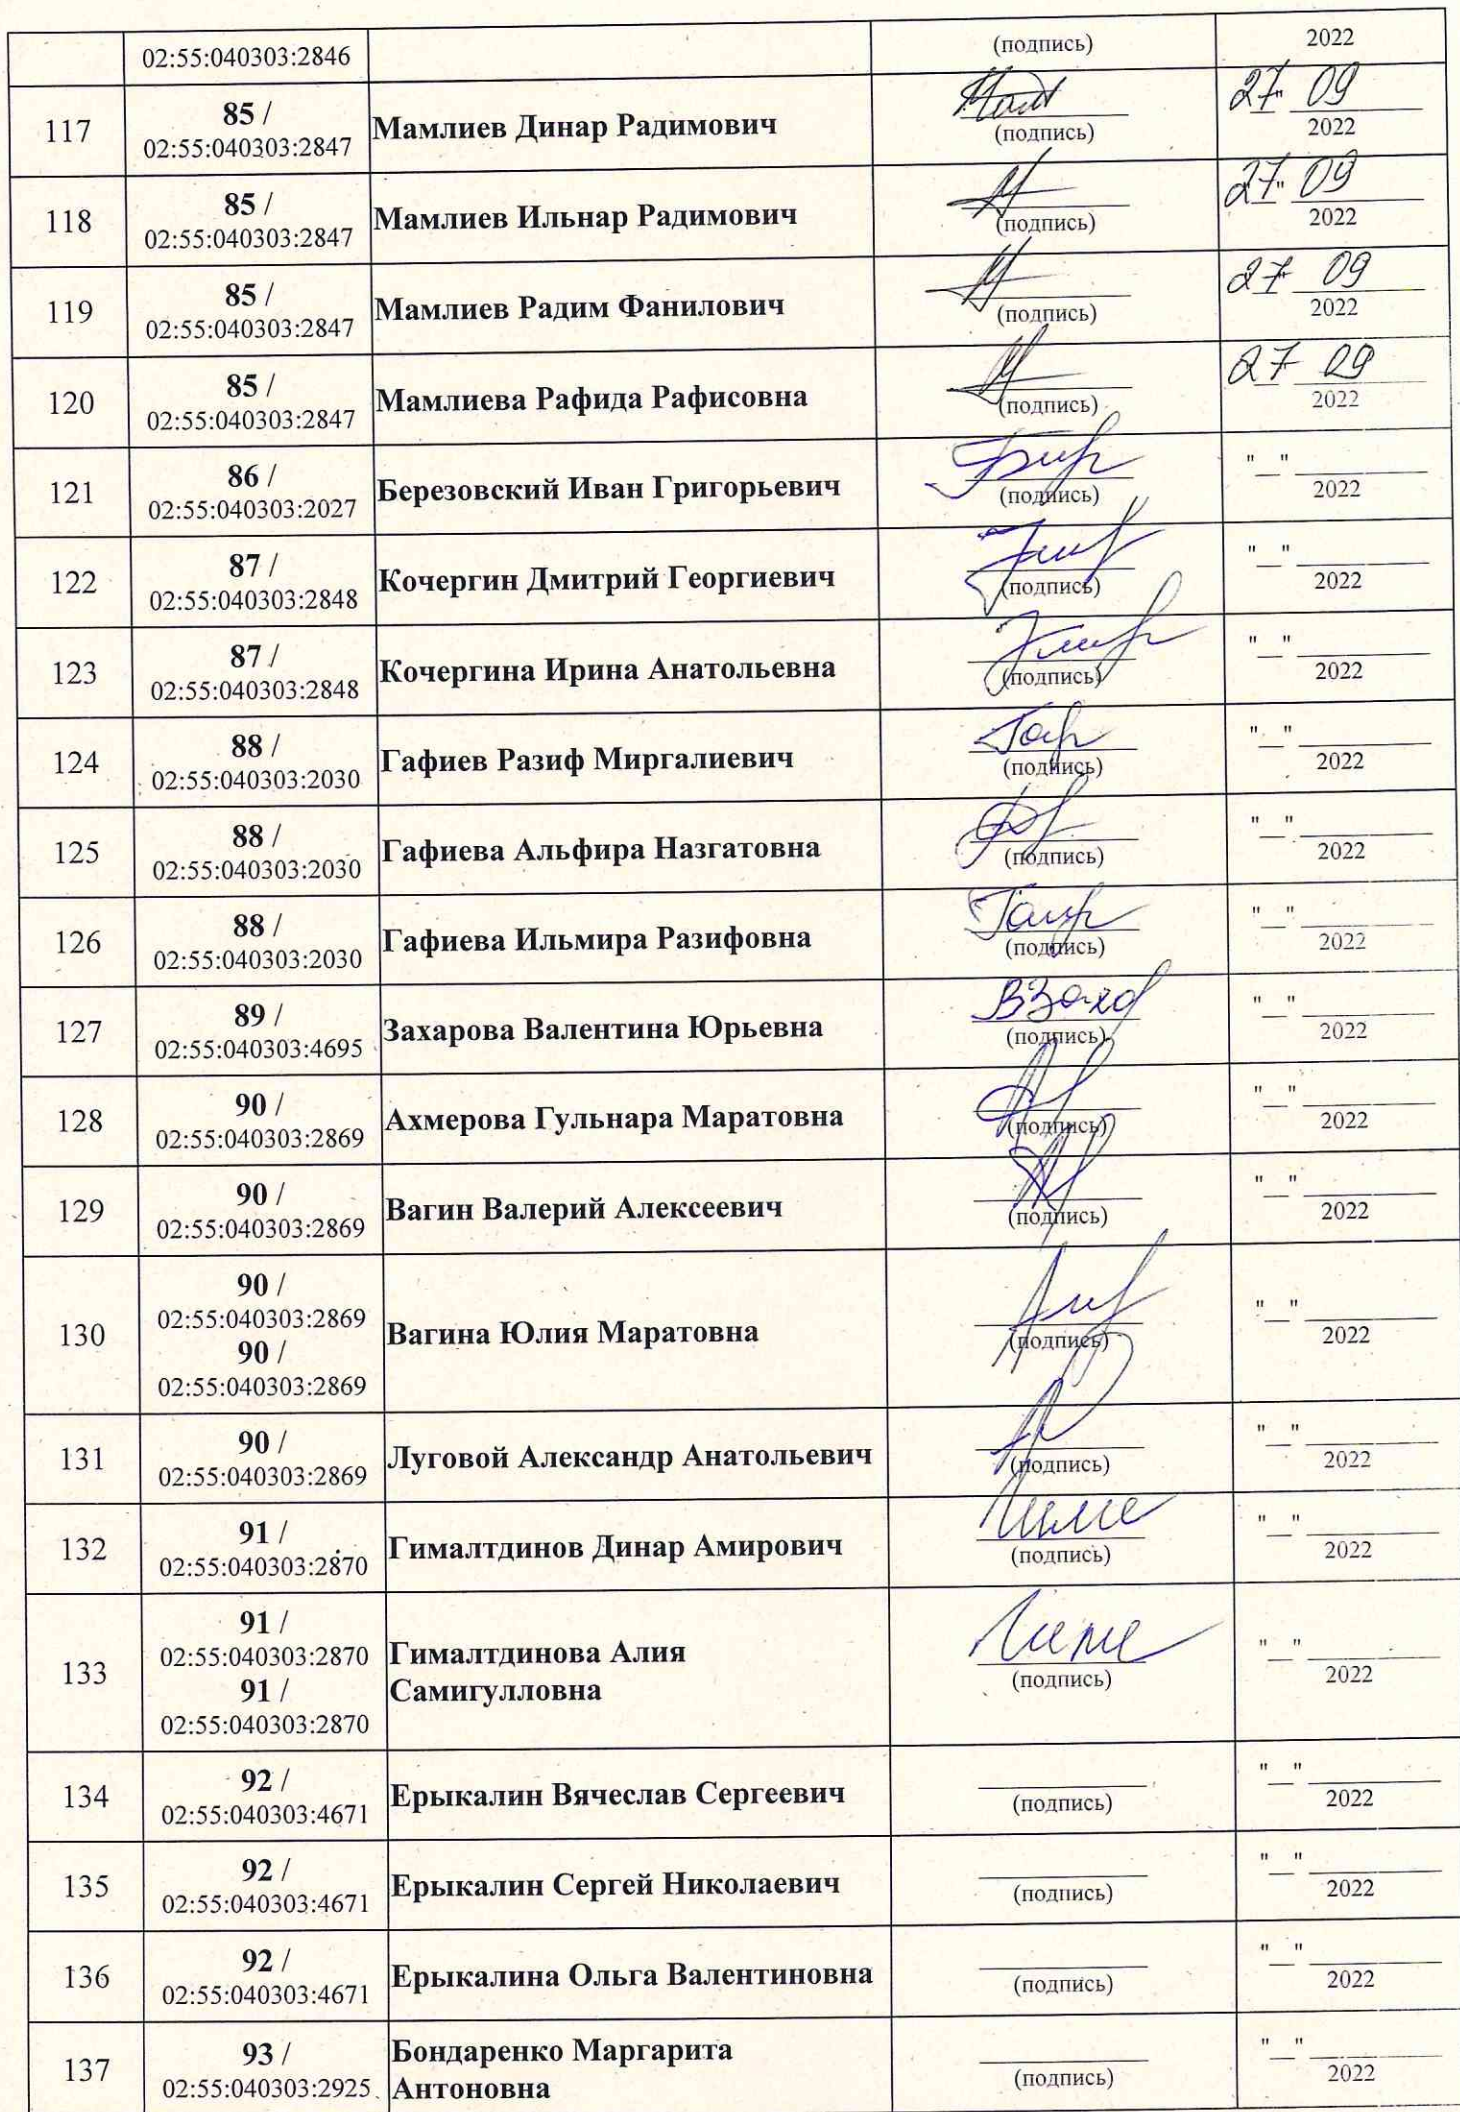 02:55:040303:2846 (подпись) 2022
117 85 / 02:55:040303:2847 Мамлиев Динар Радимович (подпись) 27 09 2022
118 85 / 02:55:040303:2847 Мамлиев Ильнар Радимович (подпись) 27 09 2022
119 85 / 02:55:040303:2847 Мамлиев Радим Фанилович (подпись) 27 09 2022
120 85 / 02:55:040303:2847 Мамлиева Рафида Рафисовна (подпись) 27 09 2022
121 86 / 02:55:040303:2027 Березовский Иван Григорьевич (подпись) "__" 2022
122 87 / 02:55:040303:2848 Кочергин Дмитрий Георгиевич (подпись) "__" 2022
123 87 / 02:55:040303:2848 Кочергина Ирина Анатольевна (подпись) "__" 2022
124 88 / 02:55:040303:2030 Гафиев Разиф Миргалиевич (подпись) "__" 2022
125 88 / 02:55:040303:2030 Гафиева Альфира Назгатовна (подпись) "__" 2022
126 88 / 02:55:040303:2030 Гафиева Ильмира Разифовна (подпись) "__" 2022
127 89 / 02:55:040303:4695 Захарова Валентина Юрьевна (подпись) "__" 2022
128 90 / 02:55:040303:2869 Ахмерова Гульнара Маратовна (подпись) "__" 2022
129 90 / 02:55:040303:2869 Вагин Валерий Алексеевич (подпись) "__" 2022
130 90 / 02:55:040303:2869 90 / 02:55:040303:2869 Вагина Юлия Маратовна (подпись) "__" 2022
131 90 / 02:55:040303:2869 Луговой Александр Анатольевич (подпись) "__" 2022
132 91 / 02:55:040303:2870 Гималтдинов Динар Амирович (подпись) "__" 2022
133 91 / 02:55:040303:2870 91 / 02:55:040303:2870 Гималтдинова Алия Самигулловна (подпись) "__" 2022
134 92 / 02:55:040303:4671 Ерыкалин Вячеслав Сергеевич (подпись) "__" 2022
135 92 / 02:55:040303:4671 Ерыкалин Сергей Николаевич (подпись) "__" 2022
136 92 / 02:55:040303:4671 Ерыкалина Ольга Валентиновна (подпись) "__" 2022
137 93 / 02:55:040303:2925 Бондаренко Маргарита Антоновна (подпись) "__" 2022